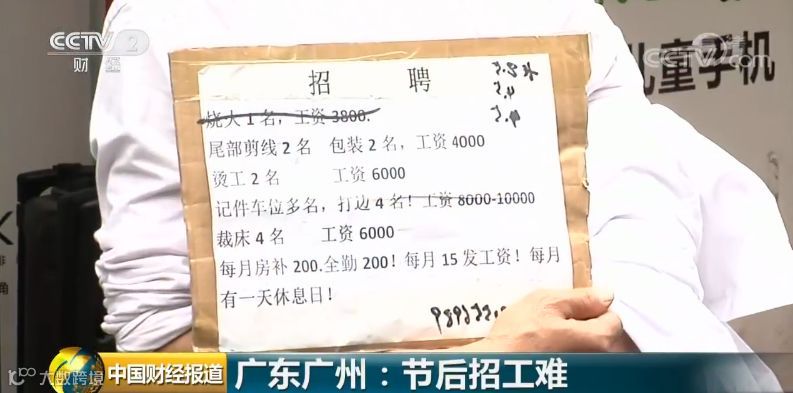 CCTV 2
财经
CCTV.com
儿童手机
招 聘
烧火1名，工资3800.
尾部剪线2名 包装2名，工资4000
烫工2名 工资6000
记件车位多名，打边4名！工资8000-10000
裁床4名 工资6000
每月房补200.全勤200！每月15发工资！每月
有一天休息日！
中国财经报道
广东广州：节后招工难
大数跨境